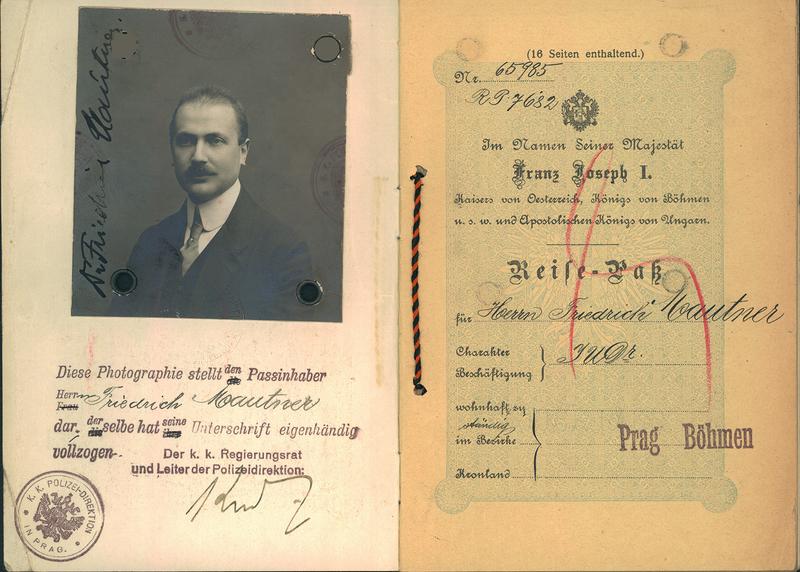 Dr Friedrich Mautner
Diese Photographie stellt den die Passinhaber
Herrn Frau Friedrich Mautner
dar. der die selbe hat seine ihre Unterschrift eigenhändig
vollzogen.
Der k. k. Regierungsrat
und Leiter der Polizeidirektion:
K. K. POLIZEI-DIREKTION
IN PRAG.
(16 Seiten enthaltend.)
Nr. 65985
RP. 7682
Im Namen Seiner Majestät
Franz Joseph I.
Kaisers von Oesterreich, Königs von Böhmen
u. s. w. und Apostolischen Königs von Ungarn.
Reise-Paß
für Herrn Friedrich Mautner
Charakter
Beschäftigung
JUDr.
wohnhaft zu
ständig
im Bezirke
Prag Böhmen
Kronland